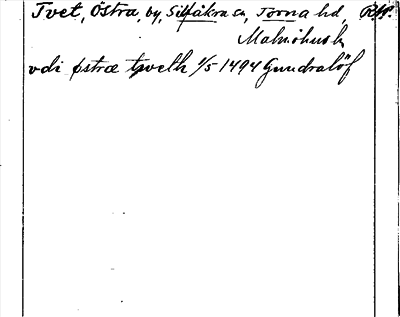 Tvet, Östra, by, Silvåkra sn, Torna hd,
Malmöhus l.
vdi østræ tweth 1/5 1494 Gundralöf